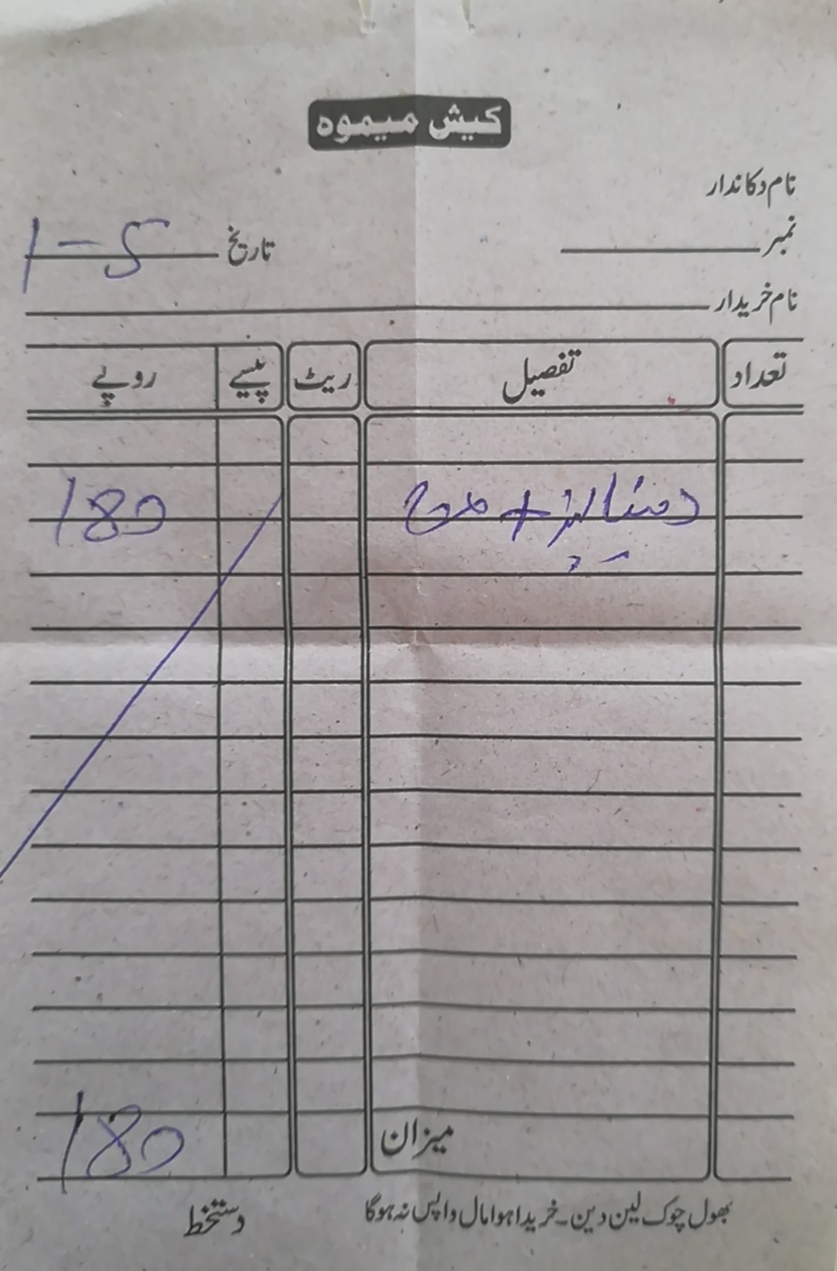 کیش میمو
نام دکاندار
نمبر تاریخ 1-5
نام خریدار
تعداد تفصیل ریٹ پیسے روپے
180
میزان 180
بھول چوک لین دین۔خریدا ہوا مال واپس نہ ہوگا دستخط